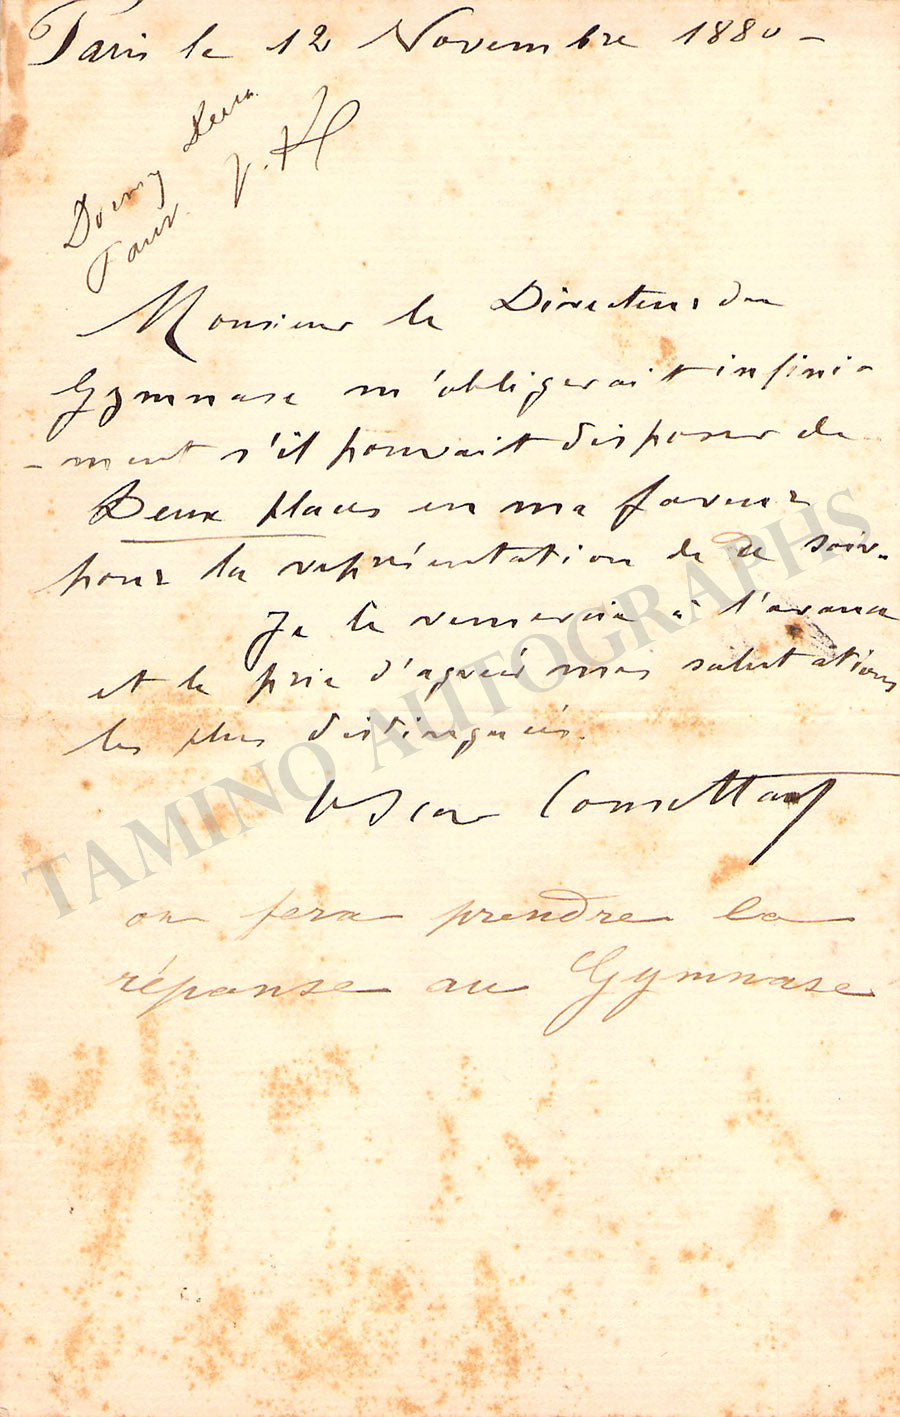 Paris le 12 Novembre 1880 -
Deux
Monsieur le Directeur du
Gymnase m'obligerait infini-
-ment s'il pouvait disposer de
Deux places en ma faveur
pour la représentation de ce soir.
Je le remercie à l'avance
et le prie d'agréer mes salutations
les plus distinguées.
Oscar Comettant
on fera prendre la
réponse au Gymnase
TAMINO AUTOGRAPHS